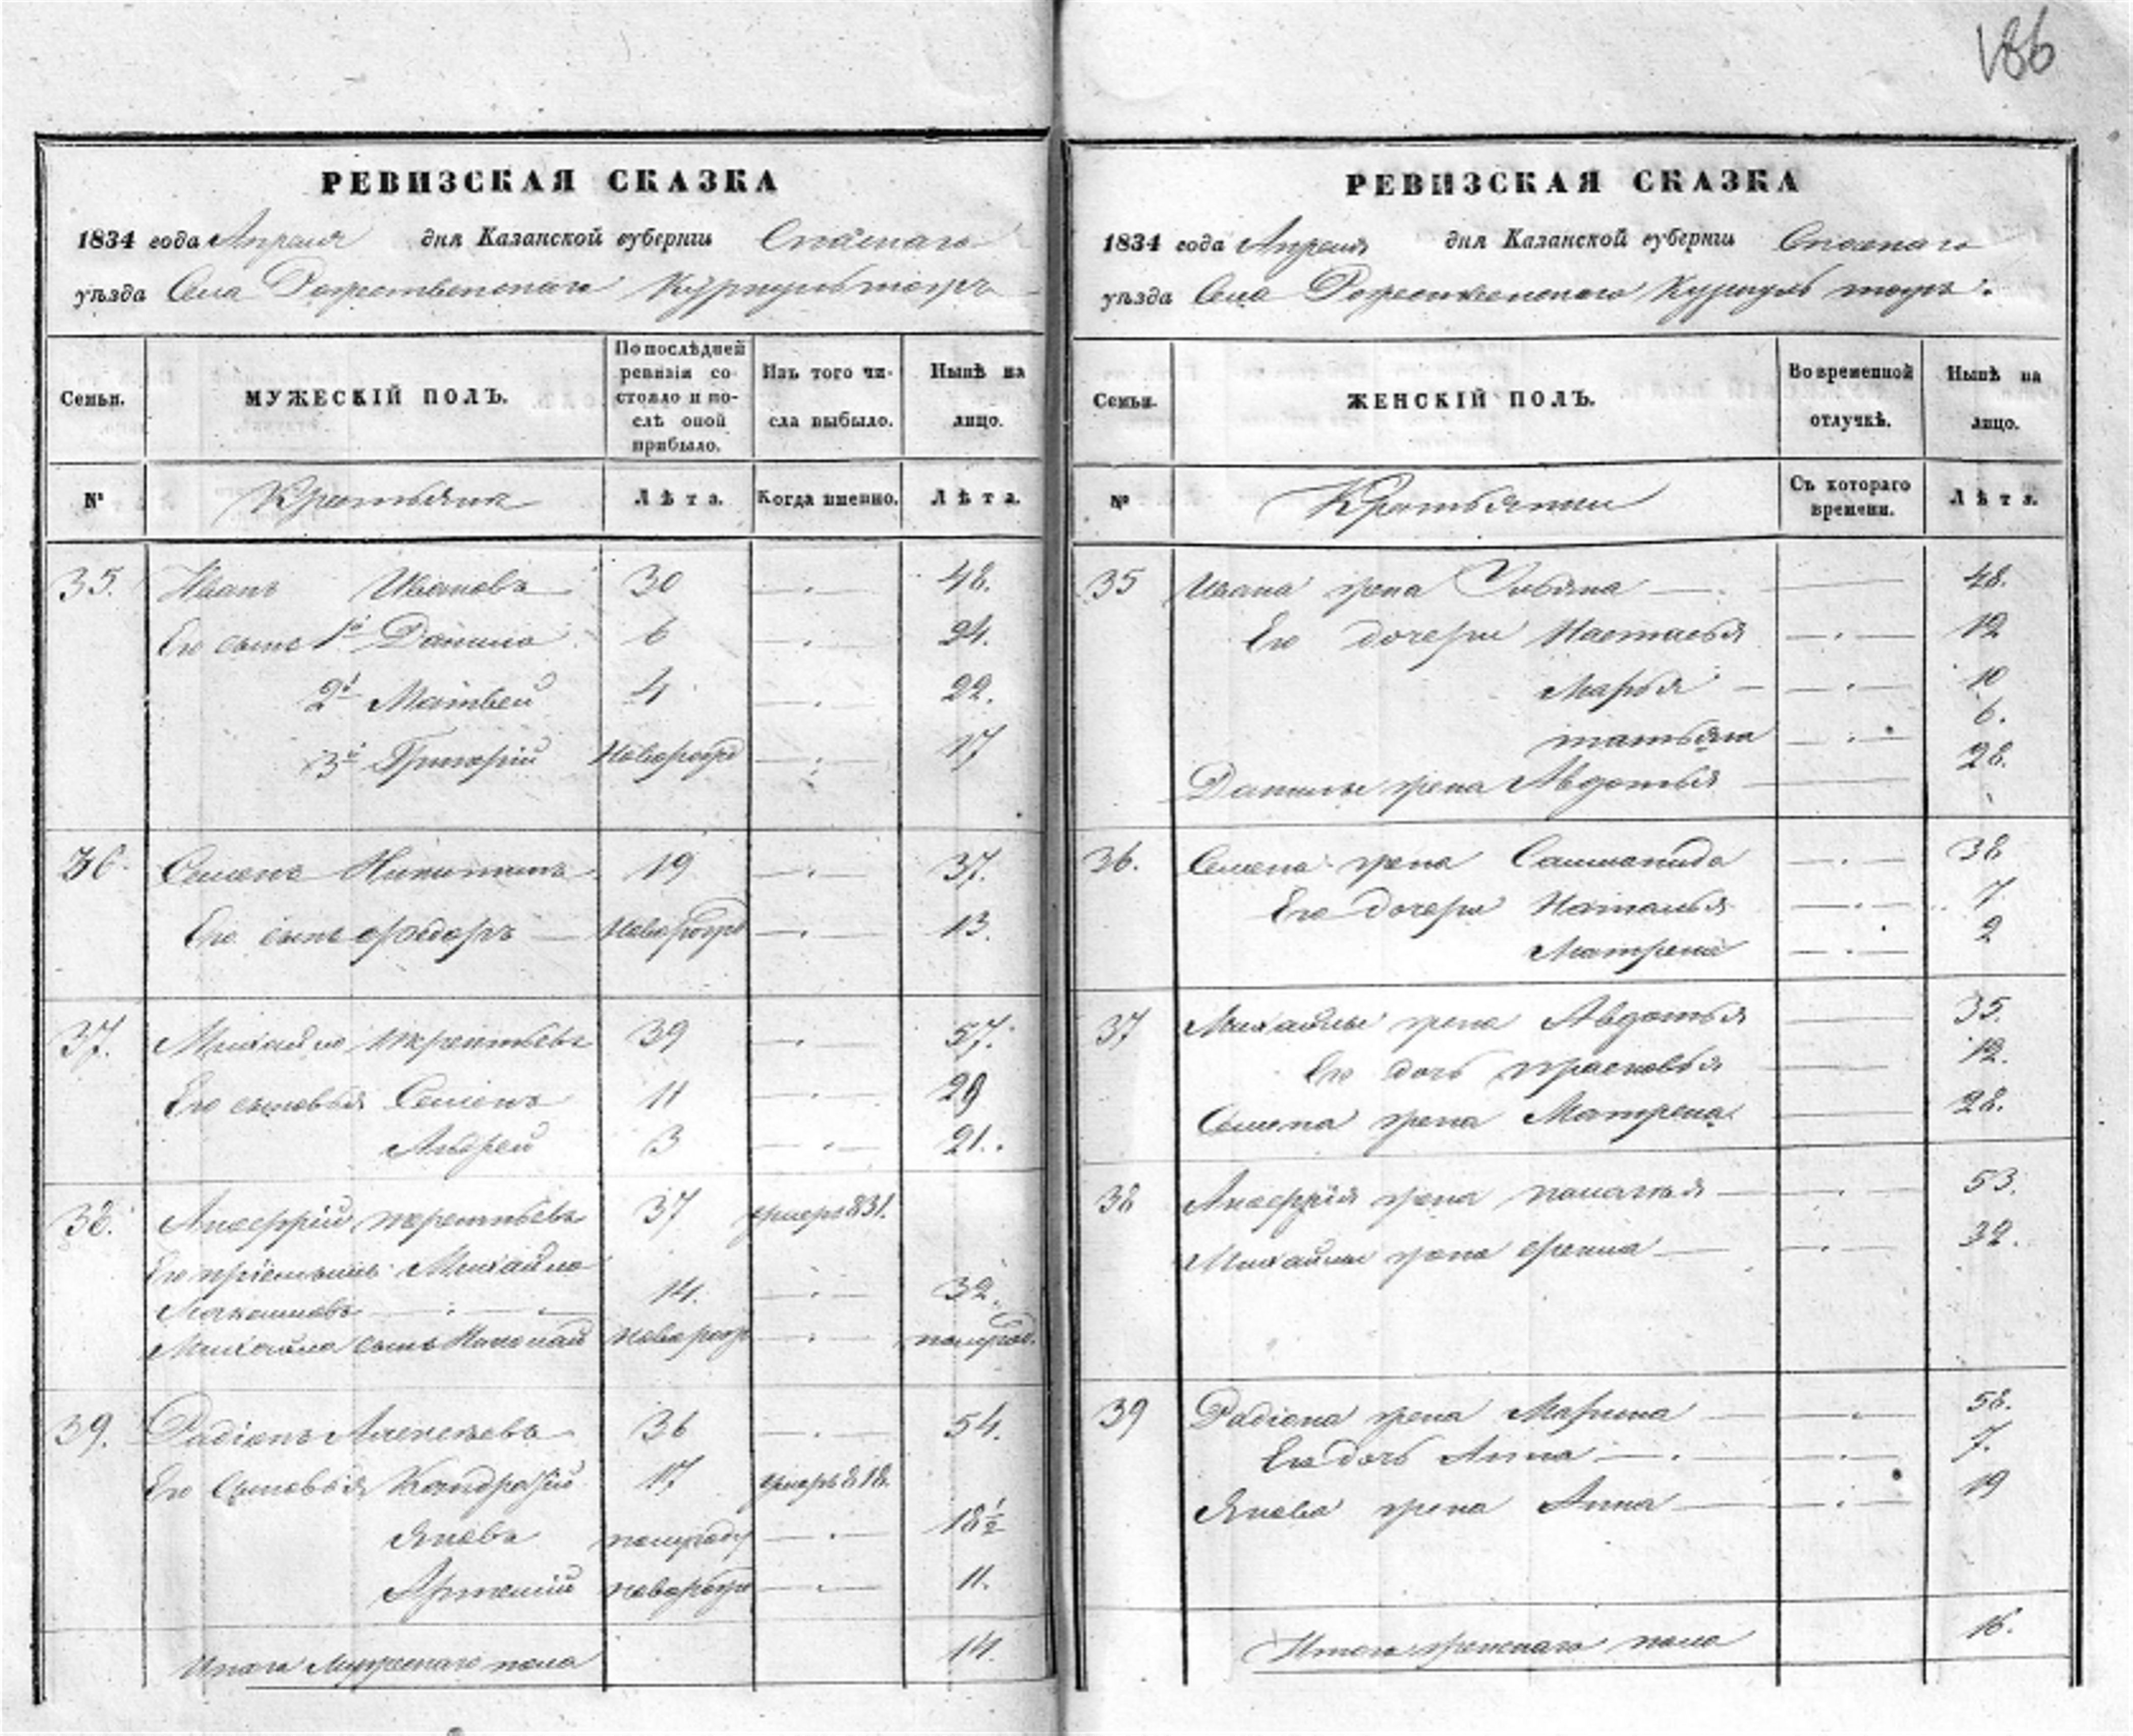 186
РЕВИЗСКАЯ СКАЗКА
1834 года Апреля дня Казанской губерніи Спаскаго
уѣзда Села Рожественскаго Куркуль тожъ
Семьи.
МУЖЕСКІЙ ПОЛЪ.
По послѣдней ревизіи состояло и послѣ оной прибыло.
Изъ того числа выбыло.
Нынѣ на лицо.
№
Крестьяне
Лѣта.
Когда именно.
Лѣта.
35. Иванъ Ивановъ 30 48.
Его сынъ 1й Данило 6 24.
2й Матвей 4 22.
3й Григорій новорожд 17
36. Семенъ Никитинъ 19 37.
Его сынъ Ѳедоръ новорожд 13.
37. Михайло Терентьевъ 39 57.
Его сыновья Семенъ 11 29
Андрей 3 21.
38. Терентьевъ 37 умеръ 831.
Его пріемышъ Михайло
14. 32.
Михайла сынъ Николай новорож полугод.
39. Радіонъ Алексѣевъ 36 54.
Его сыновья Кондратій 17 умеръ 818.
Яковъ полугоду 18½
Артемій новорожд 11.
Итого мужескаго пола 14.
РЕВИЗСКАЯ СКАЗКА
1834 года Апреля дня Казанской губерніи Спаскаго
уѣзда Села Рожественскаго Куркуль тожъ.
Семьи.
ЖЕНСКІЙ ПОЛЪ.
Во временной отлучкѣ.
Нынѣ на лицо.
№
Крестьянки
Съ котораго времени.
Лѣта.
35 Ивана жена Ульяна 48.
Его дочери Настасья 12
Марья 10
татьяна 6.
Данилы жена Авдотья 28.
36. Семена жена 38
Его дочери Наталья 7
Матрена 2
37 Михайлы жена Авдотья 35.
Его дочь Прасковья 12.
Семена жена Матрена 28.
38 жена палагья 53.
Михайлы жена 32.
39 Радіона жена Марина 58.
Его дочь Анна 7.
Якова жена Анна 19
Итого женскаго пола 16.